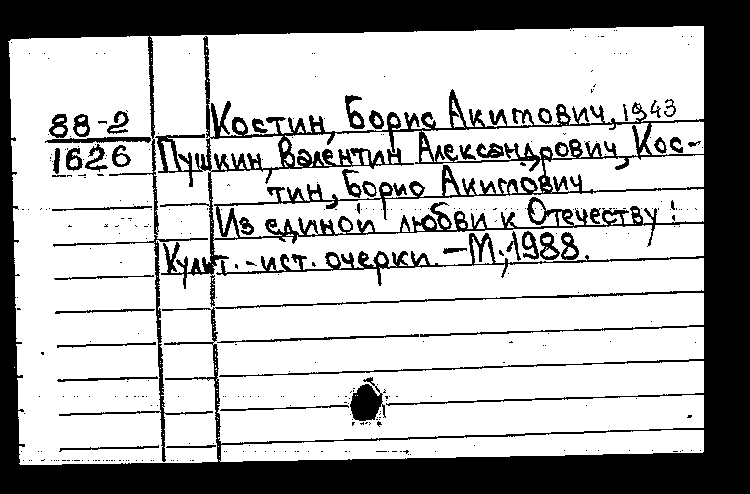 88-2
1626
Костин, Борис Акимович, 1943
Пушкин, Валентин Александрович, Кос-
тин, Борис Акимович.
Из единой любви к Отечеству:
Культ.-ист. очерки. – М., 1988.